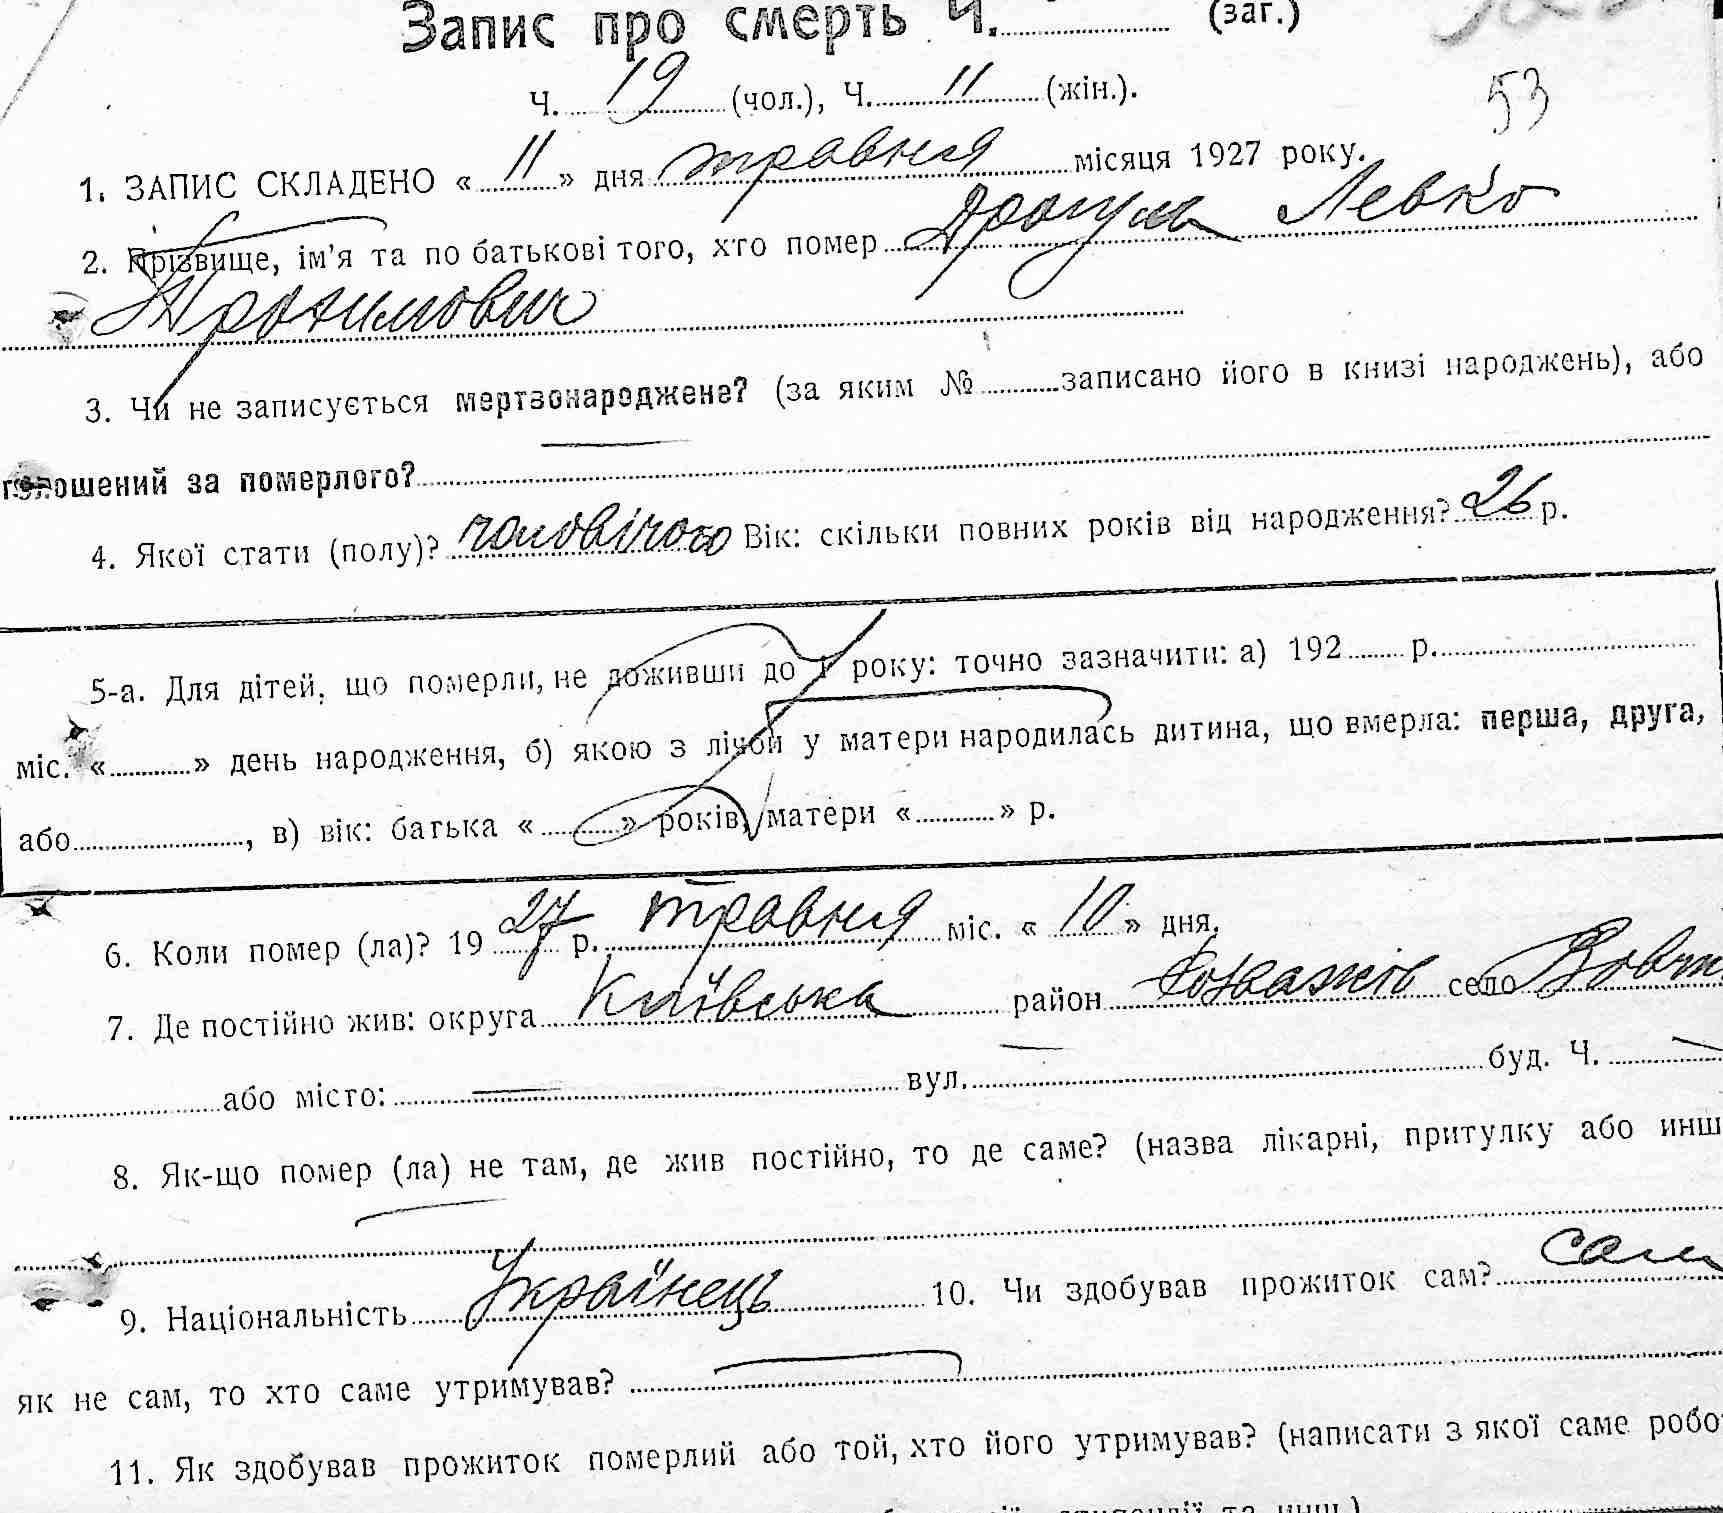 Запис про смерть Ч. (заг.)
53
Ч. 19 (чол.), Ч. 11 (жін.).
1. ЗАПИС СКЛАДЕНО « 11 » дня травня місяця 1927 року.
2. Прізвище, ім'я та по батькові того, хто помер Левко
Трохимович
3. Чи не записується мертвонароджене? (за яким № записано його в книзі народжень), або
голошений за померлого?
4. Якої стати (полу)? чоловічого Вік: скільки повних років від народження? 26 р.
5-а. Для дітей, що померли, не доживши до 1 року: точно зазначити: а) 192 р.
міс. « » день народження, б) якою з лічби у матери народилась дитина, що вмерла: перша, друга,
або , в) вік: батька « » років, матери « » р.
6. Коли помер (ла)? 19 27 р. травня міс. « 10 » дня.
7. Де постійно жив: округа Київська район село
або місто: — вул. буд. Ч. —
8. Як-що помер (ла) не там, де жив постійно, то де саме? (назва лікарні, притулку або инш
9. Національність Українець 10. Чи здобував прожиток сам? сам
як не сам, то хто саме утримував?
11. Як здобував прожиток померлий або той, хто його утримував? (написати з якої саме робо